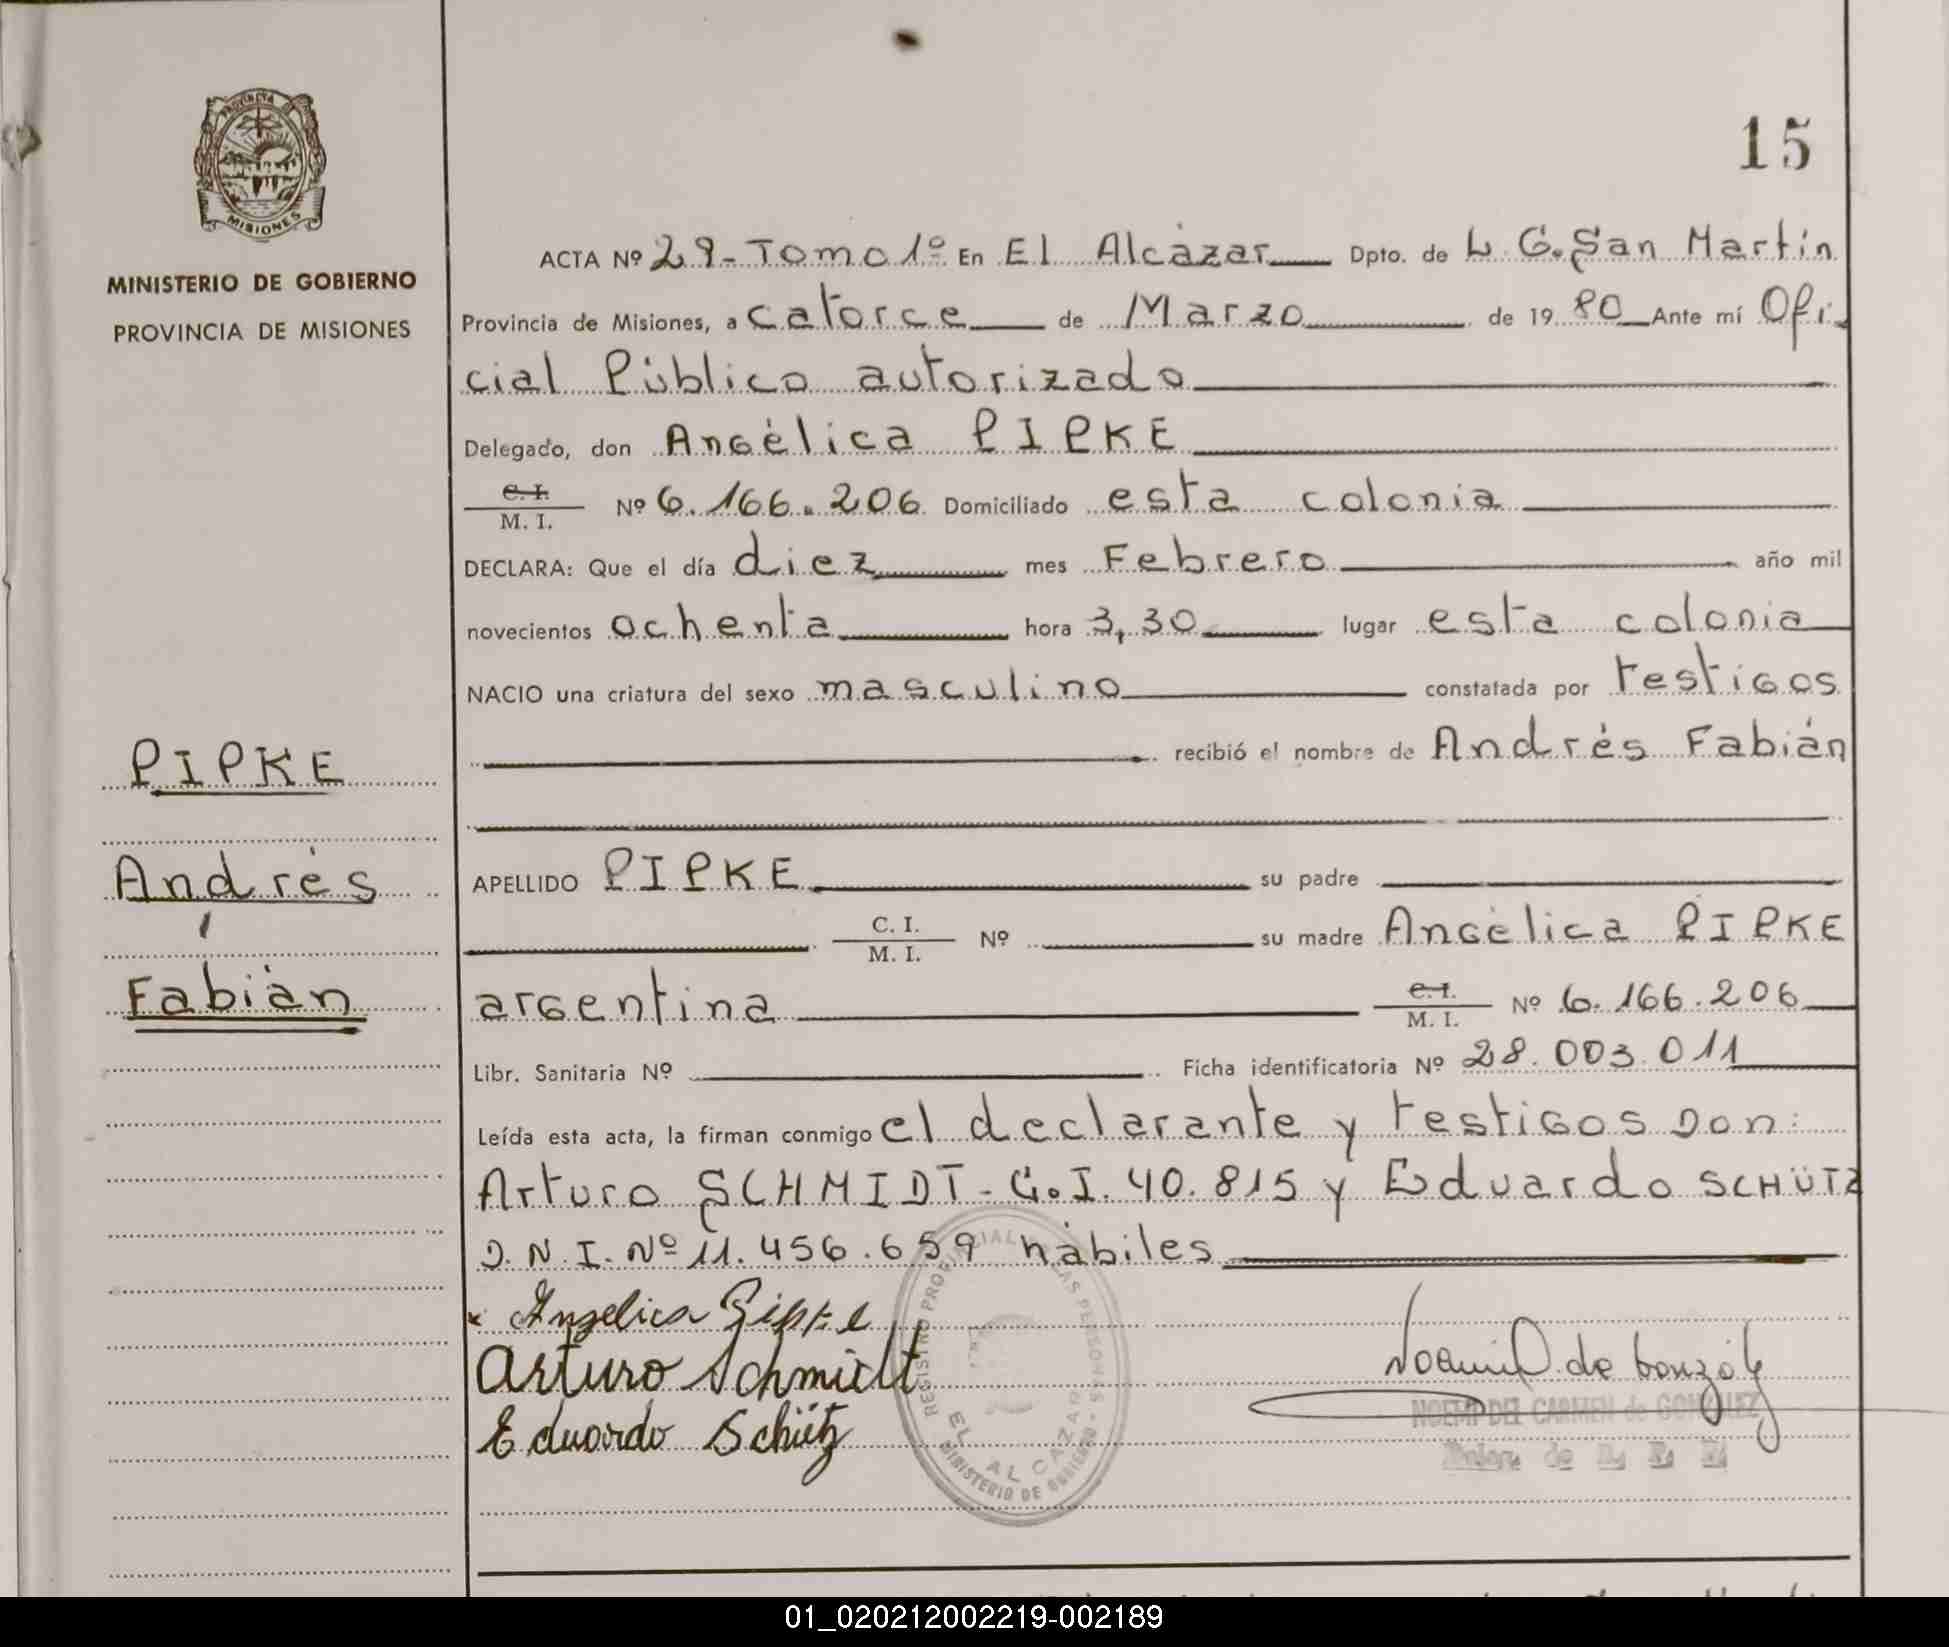 PROVINCIA DE
MISIONES
MINISTERIO DE GOBIERNO
PROVINCIA DE MISIONES
15
ACTA Nº 29-Tomo 1º En El Alcázar Dpto. de L. G. San Martín
Provincia de Misiones, a catorce de Marzo de 19 80 Ante mí Ofi
cial Público autorizado
Delegado, don Angélica PIPKE
C. I.
M. I. Nº 6.166.206 Domiciliado esta colonia
DECLARA: Que el día diez mes Febrero año mil
novecientos ochenta hora 3,30 lugar esta colonia
NACIO una criatura del sexo masculino constatada por testigos
recibió el nombre de Andrés Fabián
PIPKE
Andrés
Fabián
APELLIDO PIPKE su padre
C. I.
M. I. Nº su madre Angélica PIPKE
argentina C. I.
M. I. Nº 6.166.206
Libr. Sanitaria Nº Ficha identificatoria Nº 28.003.011
Leída esta acta, la firman conmigo el declarante y testigos Don:
Arturo SCHMIDT - C.I. 40.815 y Eduardo SCHÜTZ
D.N.I. Nº 11.456.659 hábiles
x Angelica Pipke
Arturo Schmidt
Eduardo Schütz
REGISTRO PROVINCIAL DE LAS PERSONAS
EL ALCAZAR
MINISTERIO DE GOBIERNO
Noemi D. de Gonzál
NOEMI DEL CARMEN de GONZALEZ
01_020212002219-002189